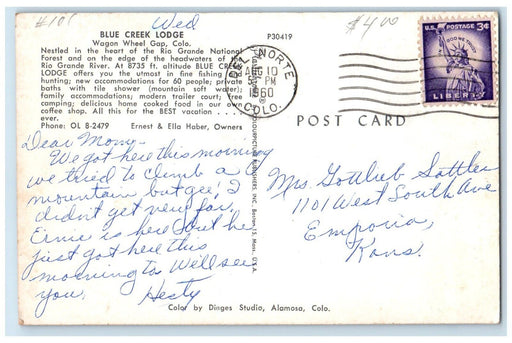 #101
Wed
$4.00
BLUE CREEK LODGE
Wagon Wheel Gap, Colo.
P30419
Nestled in the heart of the Rio Grande National
Forest and on the edge of the headwaters of the
Rio Grande River. At 8735 ft. altitude BLUE CREEK
LODGE offers you the utmost in fine fishing and
hunting; new accommodations for 60 people; private
baths with tile shower (mountain soft water);
family accommodations; modern trailer court; free
camping; delicious home cooked food in our own
coffee shop. All this for the BEST vacation ....
ever.
Phone: OL 8-2479 Ernest & Ella Haber, Owners
DEL NORTE
AUG 10
5 PM
1960
COLO.
U.S. POSTAGE 3¢
IN GOD WE TRUST
LIBERTY
POST CARD
COLOURPICTURE PUBLISHERS, INC. Boston 15, Mass. U.S.A.
Dear Mom-
We got here this morning
we tried to climb a
mountain but gee! I
didn't get very far,
Ernie is here but he
just got here this
morning to Will see
you. Hesty
Mrs Gottlieb Sattler
1101 West South Ave
Emporia,
Kans.
Color by Dinges Studio, Alamosa, Colo.